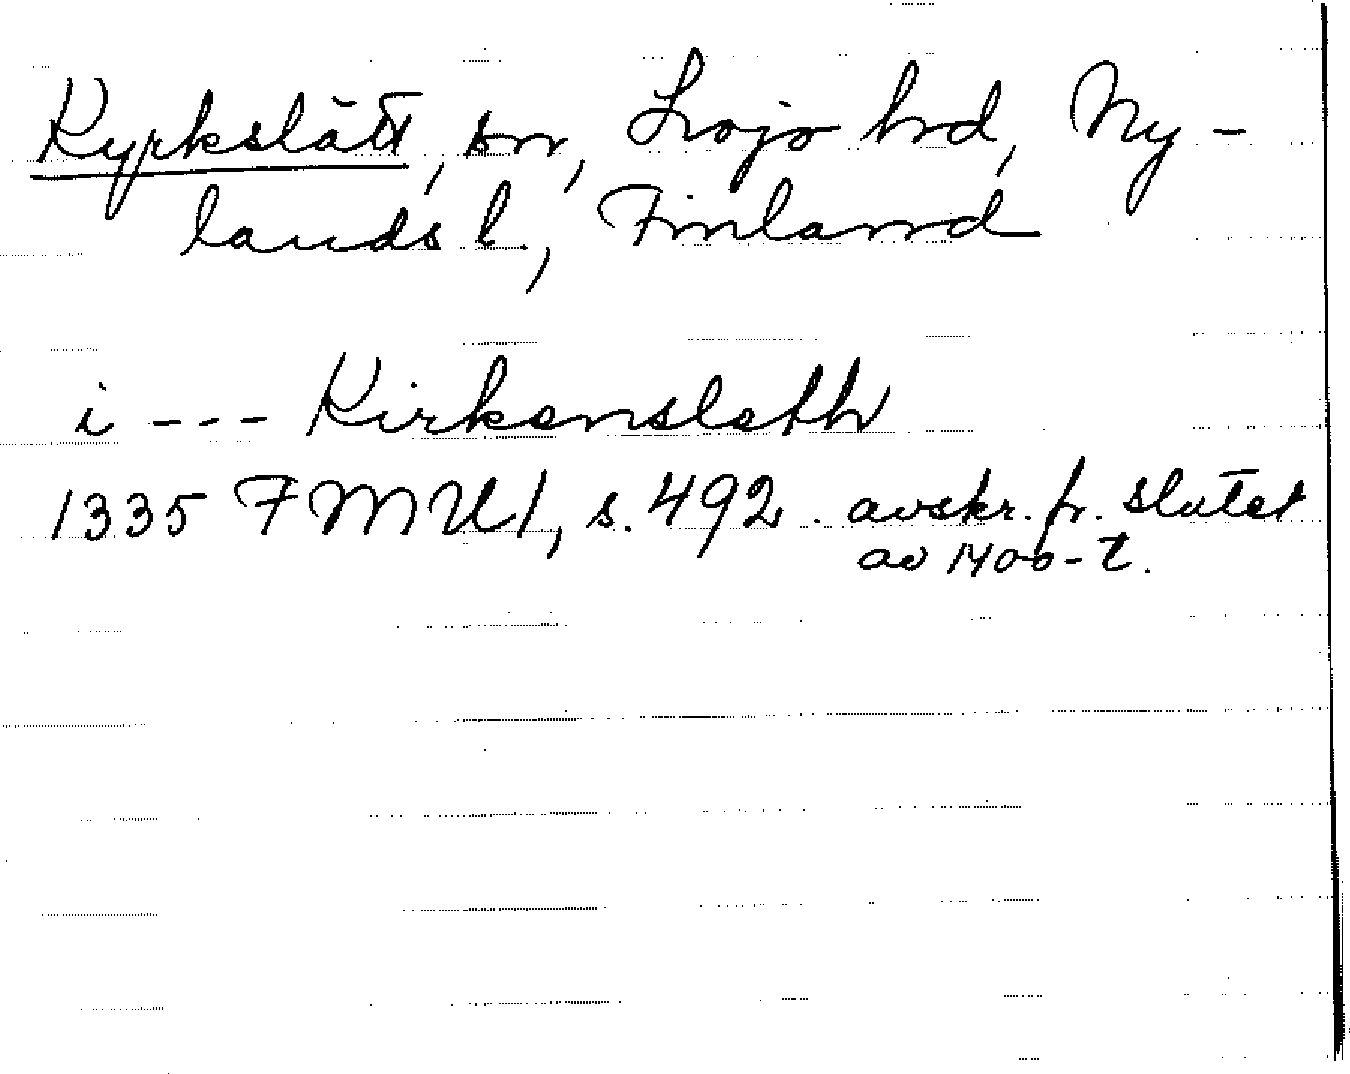 Kyrkslätt, sn, Lojo hd, Ny-
lands l., Finland
i --- Kirkensleth
1335 FMU 1, s. 492. avskr. fr. slutet
av 1400-t.